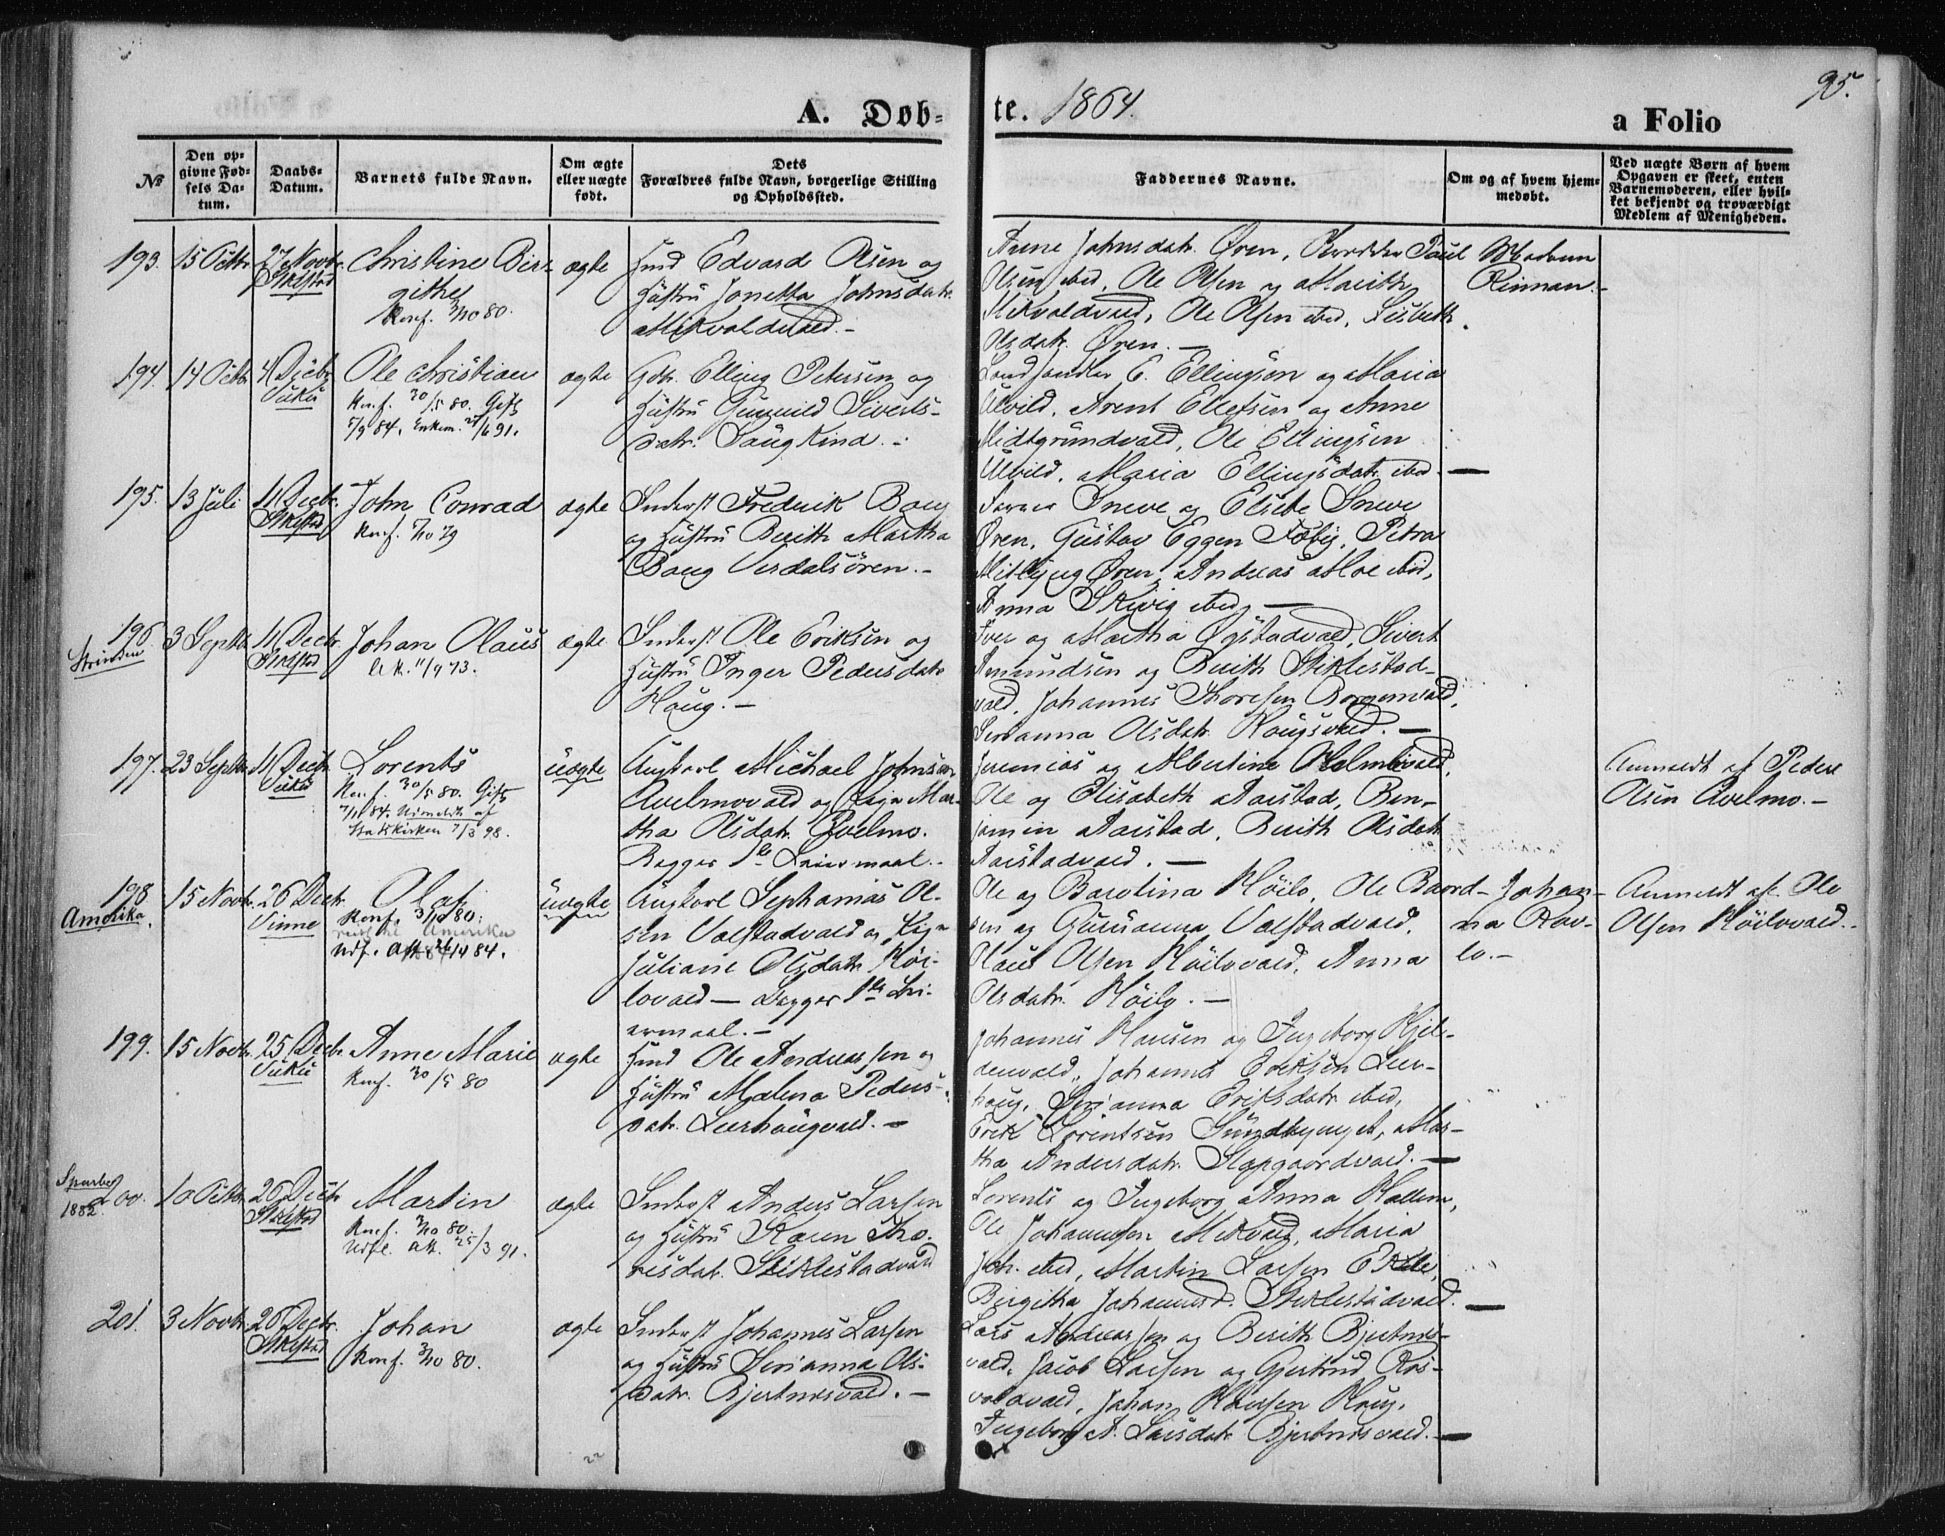 95.
A. Døb=
te. 1864.
a Folio
No
Den op=
givne Fød=
sels Da=
tum.
Daabs=
Datum.
Barnets fulde Navn.
Om ægte
eller uægte
født.
Dets
Forældres fulde Navn, borgerlige Stilling
og Opholdssted.
Faddernes Navne.
Om og af hvem hjem=
medøbt.
Ved uægte Børn af hvem
Opgaven er skeet, enten
Barnemoderen, eller hvil=
ket bekjendt og troværdigt
Medlem af Menigheden.
193. 15 Octbr. 27 Novbr. Christine Bir-
Stklstad githe
Konf. 3/10 80.
ægte
Husmd Edvard Olsen og
Hustru Jonetta Johnsdatr.
Mikvoldvald.-
Anne Johnsdatr. Øren, Paul
Olsen ibd, Ole Olsen og Marith
Mikvoldvald, Ole Olsen ibd, Lisbeth
Olsdatr. Øren.-
Madam
Rinnan.-
194. 14 Octbr. 4 Decbr. Ole Christian
Vukù
Konf. 30/5 80. Gift
5/9 84. Enkem. /6 91.
ægte
Gdbr. Elling Petersen og
Hustru Gunnild Siverts-
datr.
Landhandler E. Ellingsen og Maria
Ulvild, Arent Ellefsen og Anne
Midtgrundvald, Ole Ellingsen
Ulvild, Maria Ellingsdatr. ibd.-
195. 13 Juli 11 Decbr. John Conrad
Stklstad Konf. 7/10 79
ægte
Inderst Frederik Boug
og Hustru Berith Martha
Boug Verdalsøren.-
Sneve og Elsebe Sneve
Øren, Gustav Eggen Fæby, Petra
Øren, Andreas Moe ibid,
Anna Skivig ibd.-
196. 3 Septbr. 11 Decbr. Johan Olaus
Strinden. Stklstad
11/9 73.
ægte
Inderst Ole Eriksen og
Hustru Inger Pedersdatr
Haug.-
Iver og Martha Øgstadvald, Sivert
Amundsen og Berith Stiklestad-
vald, Johannes Thoresen Borgenvald,
Serianna Olsdatr. Haugsvald.-
197. 23 Septbr. 11 Decbr. Lorents
Vukù
Konf. 30/5 80. Gift
7/11 84. Udmeldt af
Statskirken 7/3 98.
uægte
Ungkarl Michael Johnsen
Avelmovald og Pige Mar-
tha Olsdatr. Avelmo.
Begges 1ste Leiermaal.-
Jeremias og Albertine Holmlivald,
Ole og Elisabeth Aarstad, Ben-
jamin Aarstad, Berith Olsdatr
Aarstadvald.-
Anmeldt af Peder
Olsen Avelmo.-
198 15 Novbr. 26 Decbr. Olaf
Amerika. Vinne
Konf. 3/10 80.
reist til Amerika
Udf. Att. 26/10 84.
uægte
Ungkarl Sephanias Ol-
sen Valstadvald og Pige
Juliane Olsdatr. Høi-
lovald - Begges 1ste Lei-
ermaal.-
Ole og Barolina Høilo, Ole Baard-
sen og Gurianna Valstadvald,
Olaus Olsen Høilovald, Anna
Olsdatr. Høilo.-
Johan-
na Kav-
lo.-
Anmeldt af Ole
Olsen Høilovald.-
199. 15 Novbr. 25 Decbr. Anne Marie
Vukù Konf. 30/5 80
ægte
Husmd Ole Andreassen og
Hustru Malena Peders-
datr. Leerhaugvald.-
Johannes Hansen og Ingeborg Hjel-
denvald, Johannes Eriksen Leer-
haug, Serianna Eriksdatr. ibd,
Erik Lorentsen Sundbynget, Mar-
tha Andersdatr. Slapgaardvald.-
200. 10 Octbr. 26 Decbr. Martin
Sparbo
1882. Stklstad
Konf. 3/10 80.
Udfl. Att. 25/3 91.
ægte
Inderst Anders Larsen
og Hustru Karen Tho-
resdatr. Stiklestadvald
Lorents og Ingeborg Anna Hallem,
Ole Johannesen Mikvold, Maria
Joh. ibd, Martin Larsen Ekle,
Birgitha Johannesd. Stiklestadvald.-
201. 3 Novbr. 26 Decbr. Johan
Stklstad Konf. 3/10 80.
ægte
Inderst Johannes Larsen
og Hustru Serianna Ols-
datr. Bjertnesvald.-
Lars Andreassen og Berith Bjertnes-
vald, Jacob Larsen og Gjertrud Ros-
voldvald, Johan Hansen Haug,
Ingeborg A. Larsdatr. Bjertnesvald.-